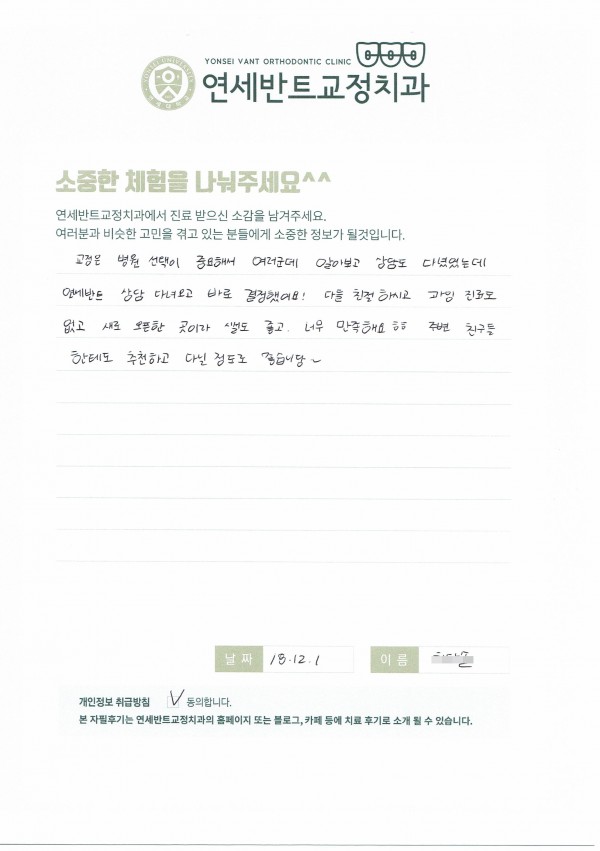 YONSEI VANT ORTHODONTIC CLINIC
연세반트교정치과
소중한 체험을 나눠주세요^^
연세반트교정치과에서 진료 받으신 소감을 남겨주세요.
여러분과 비슷한 고민을 겪고 있는 분들에게 소중한 정보가 될것입니다.
교정은 병원 선택이 중요해서 여러군데 알아보고 상담도 다녔었는데
연세반트 상담 다녀오고 바로 결정했어요! 다들 친절하시고 과잉 진료도
없고 새로 오픈한 곳이라 시설도 좋고. 너무 만족해요 ㅎㅎ 주변 친구들
한테도 추천하고 다닐 정도로 좋습니당~
날짜 18.12.1
이름
개인정보 취급방침 V 동의합니다.
본 자필후기는 연세반트교정치과의 홈페이지 또는 블로그, 카페 등에 치료 후기로 소개 될 수 있습니다.